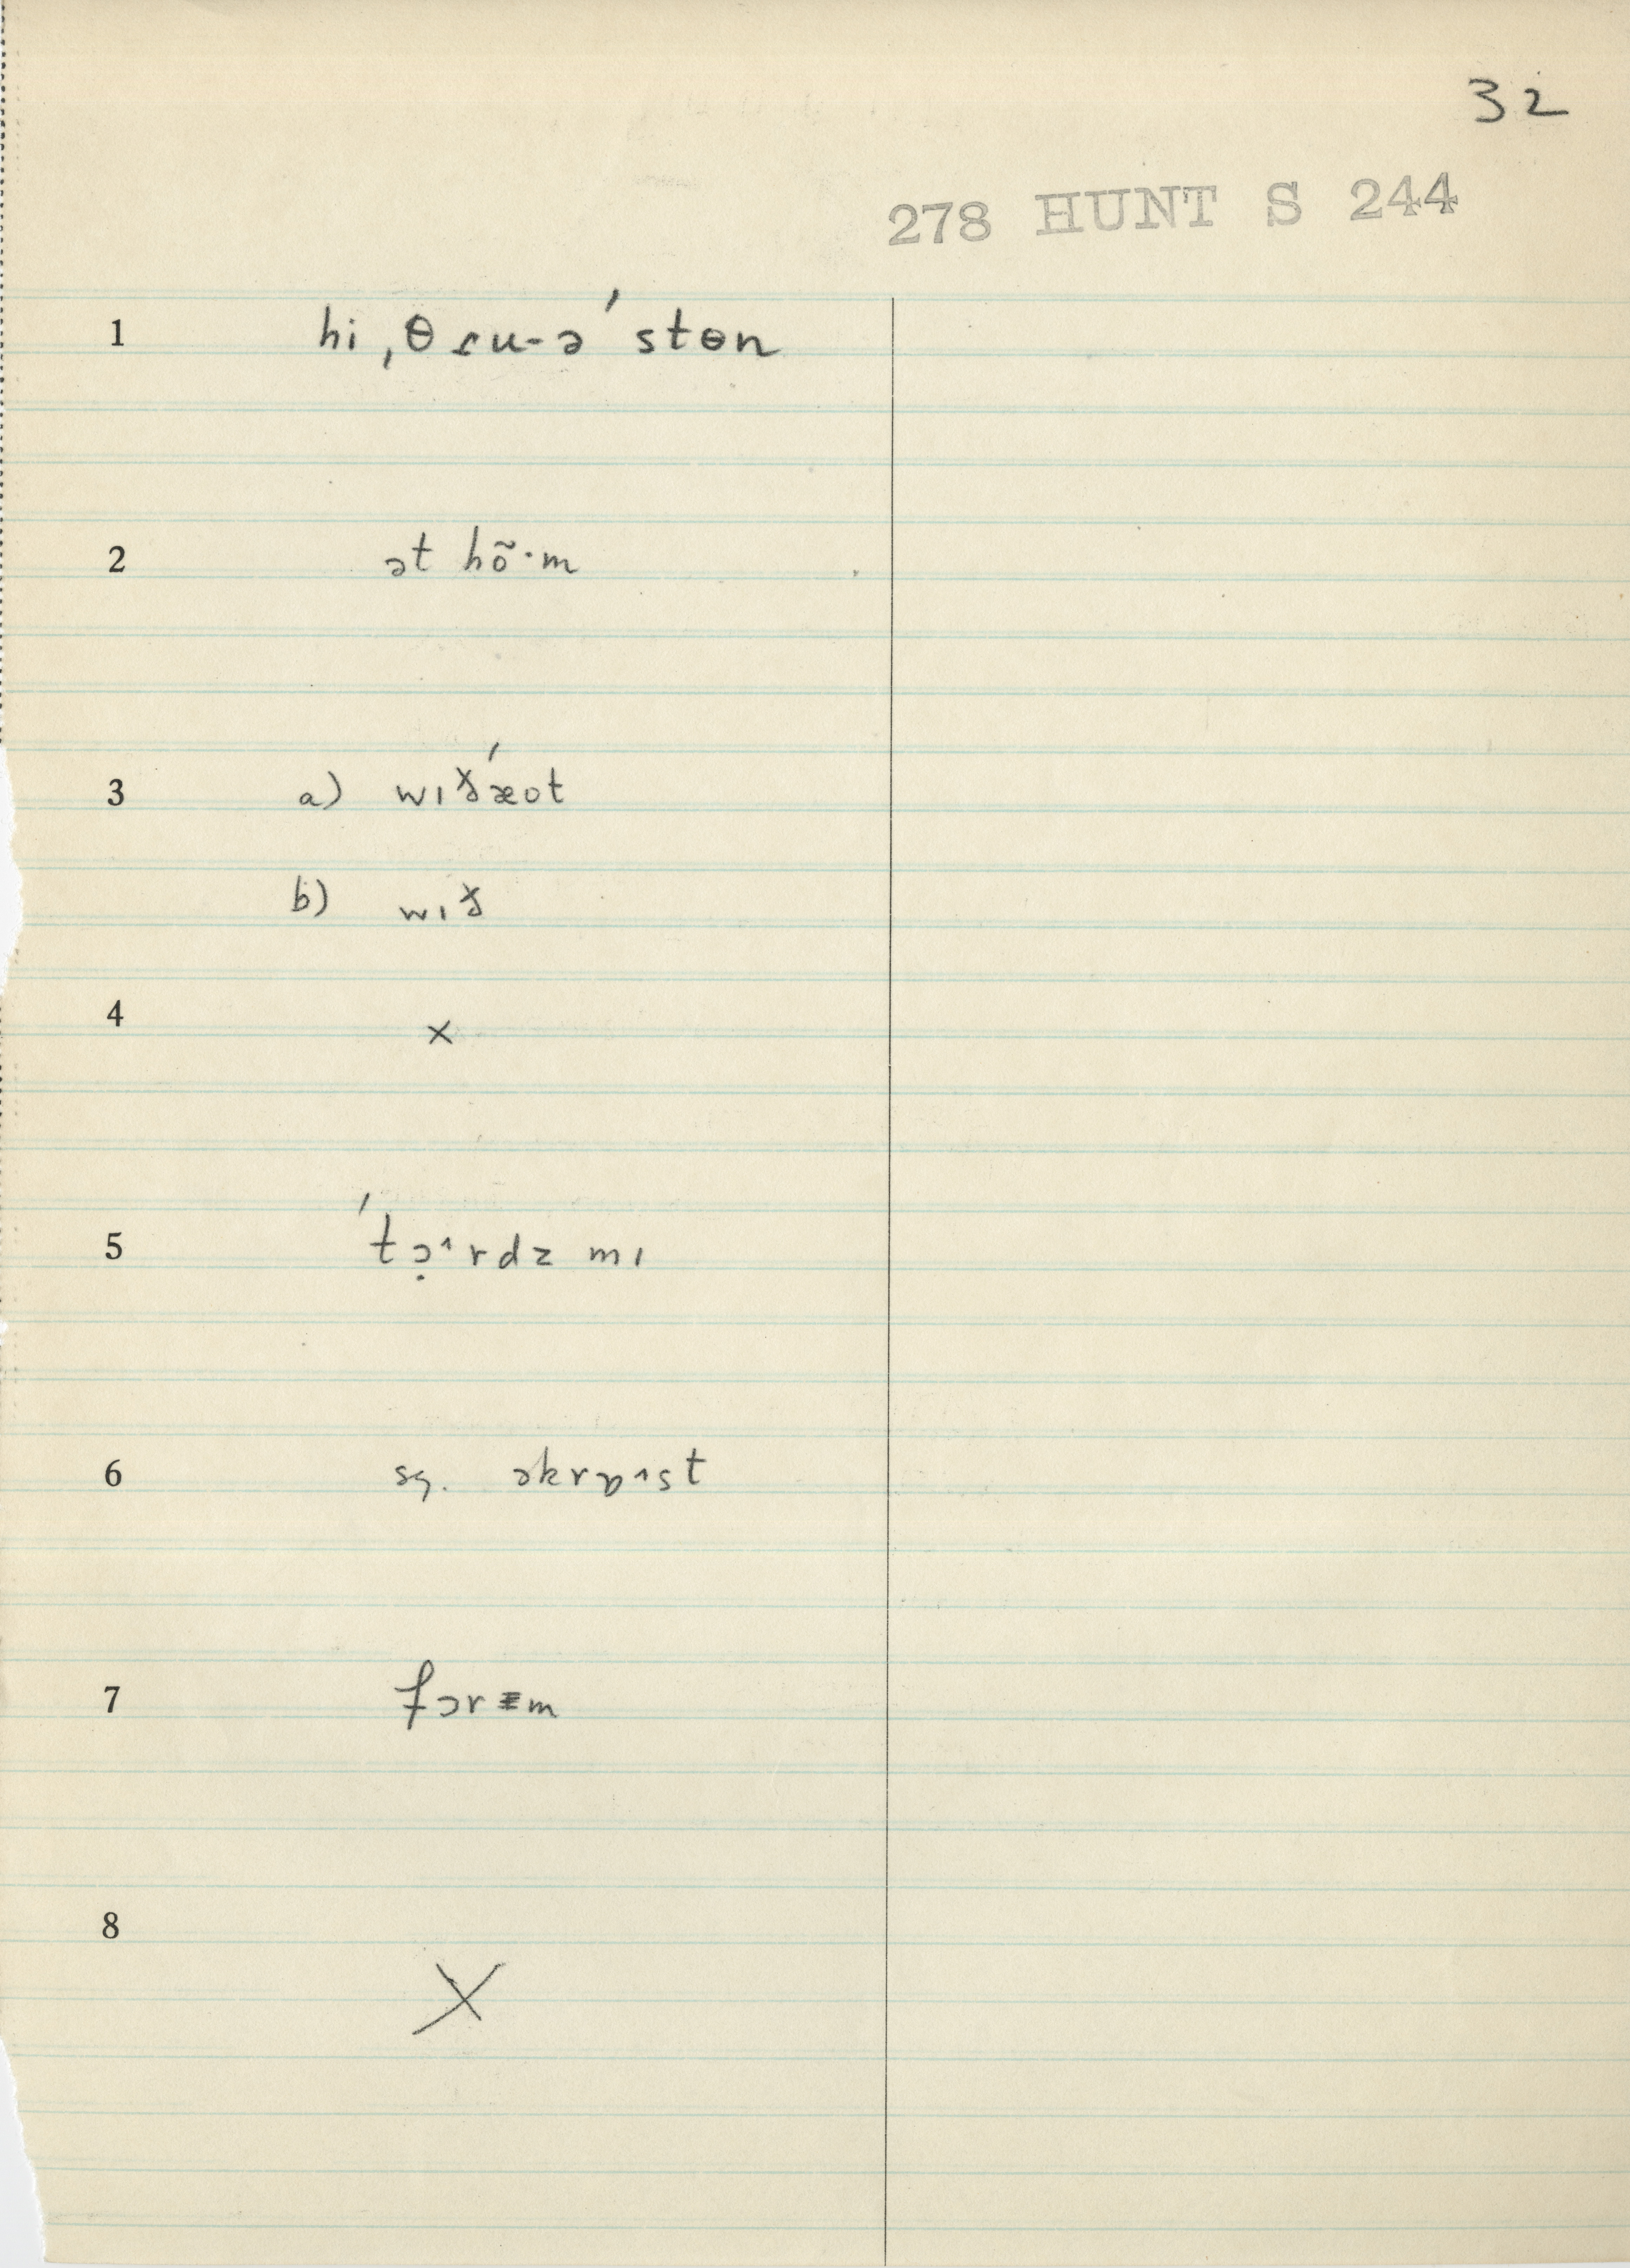 32
278 HUNT S 244
1 hi ˌθɾu-ə ˈstɵn
2 ət hõ·m
3 a) wɪðˈæot
b) wɪð
4 ×
5 ˈtɔ̣˄rdz mɪ
6 sg. əkrɒ˄st
7 fɔrɵm
8 X